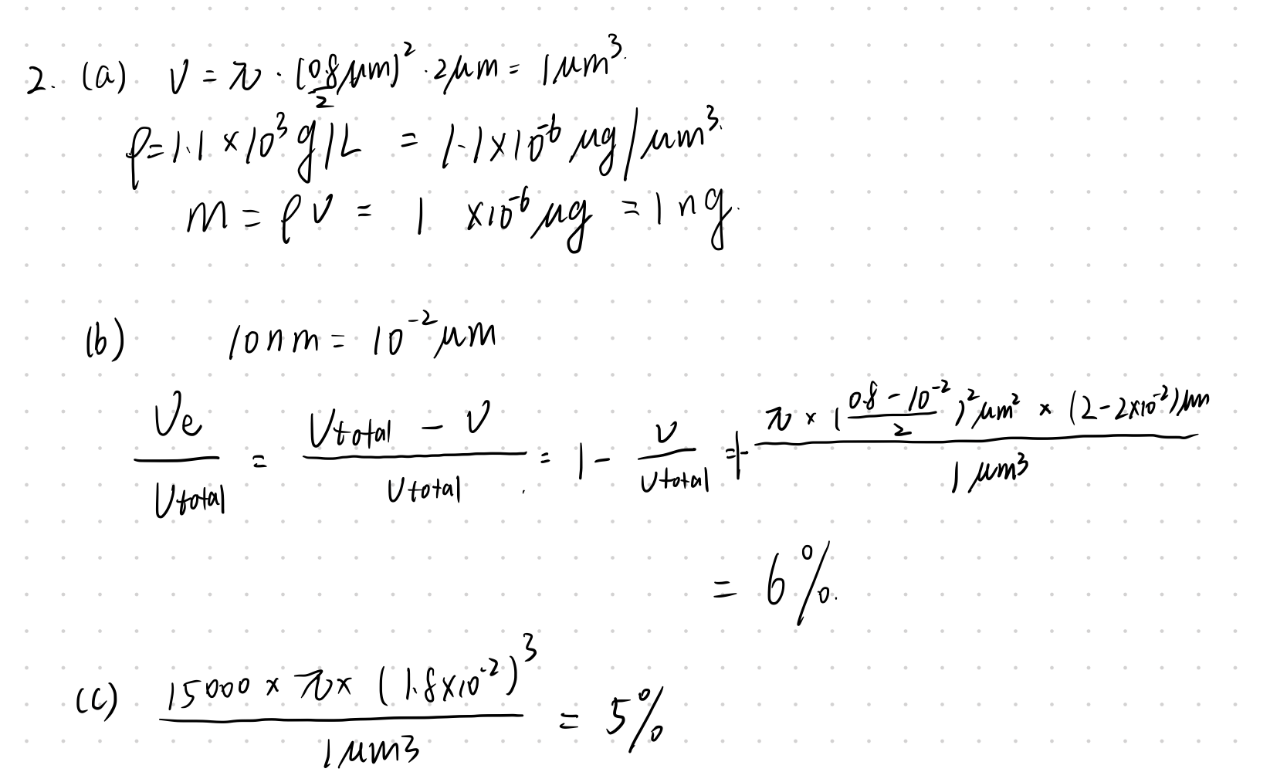 2. (a) V = π · (0.8μm/2)² · 2μm = 1μm³.
ρ = 1.1 × 10³ g/L = 1.1×10⁻⁶ μg/μm³.
m = ρV = 1 ×10⁻⁶ μg = 1 ng.
(b) 10nm = 10⁻² μm
Ve/Vtotal = (Vtotal - V)/Vtotal = 1 - V/Vtotal = 1 - (π × ((0.8-10⁻²)/2)² μm² × (2-2×10⁻²)μm)/(1 μm³)
= 6%.
(c) (15000 × π × (1.8×10⁻²)³)/(1 μm3) = 5%